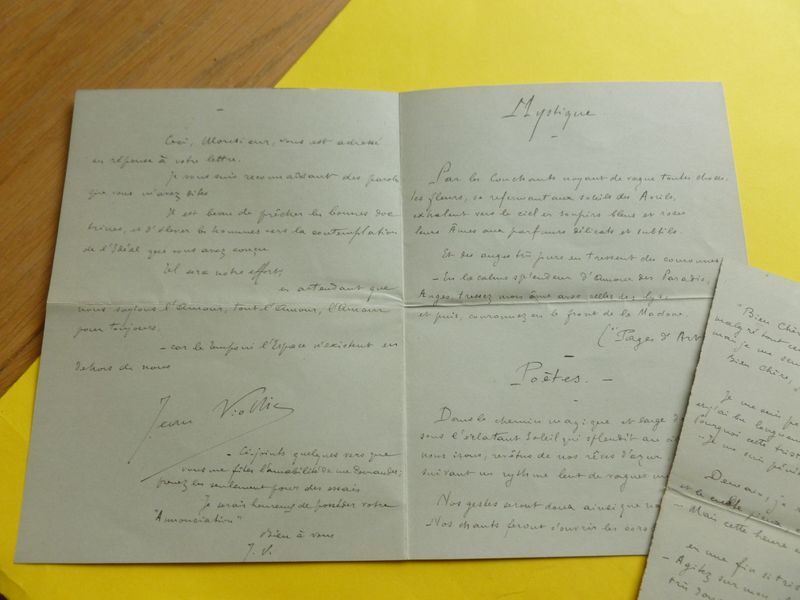 Ceci, Monsieur, vous est adressé
en réponse à votre lettre.
Je vous suis reconnaissant des parole
que vous m'avez dites
Il est beau de prêcher les bonnes doc
trines, et d'élever les hommes vers la contemplation
de l'Idéal que vous avez conçu
Tel sera notre effort,
en attendant que
nous soyions l'Amour, tout l'Amour, l'Amour
pour toujours.
- car le Temps ni l'Espace n'existent en
dehors de nous
Jean
- Ci-joints quelques vers que
vous me fîtes l'amabilité de me demander;
prenez les seulement pour des essais
Je serais heureux de posséder votre
"Annonciation"
Bien à vous
J. V.
Mystique
Par les Couchants noyant de vague toutes choses
les fleurs, se refermant aux soleils des Avrils,
exhalent vers le ciel en soupirs bleus et roses
leurs Âmes aux parfums délicats et subtils.
Et des anges très purs en tressent des couronnes
- En la calme splendeur d'Amour des Paradis,
Anges, tressez mon âme avec celles des lys
et puis, couronnez en le front de la Madone.
("Pages d'Art
Poètes. -
Dans le chemin magique et large
sous l'éclatant Soleil qui splendit au
nous irons, revêtus de nos rêves d'azur
suivant un rythme lent de vagues
Nos gestes seront doux ainsi que
Nos chants feront s'ouvrir les
"Bien Chère
malgré tout
mais je me
Bien Chère,
Je me suis
et j'ai bu longuement
Pourquoi cette
- Je me suis
Demain, j'
et la
- Mais cette heure
en une fin si
- Agitez sur mon
très